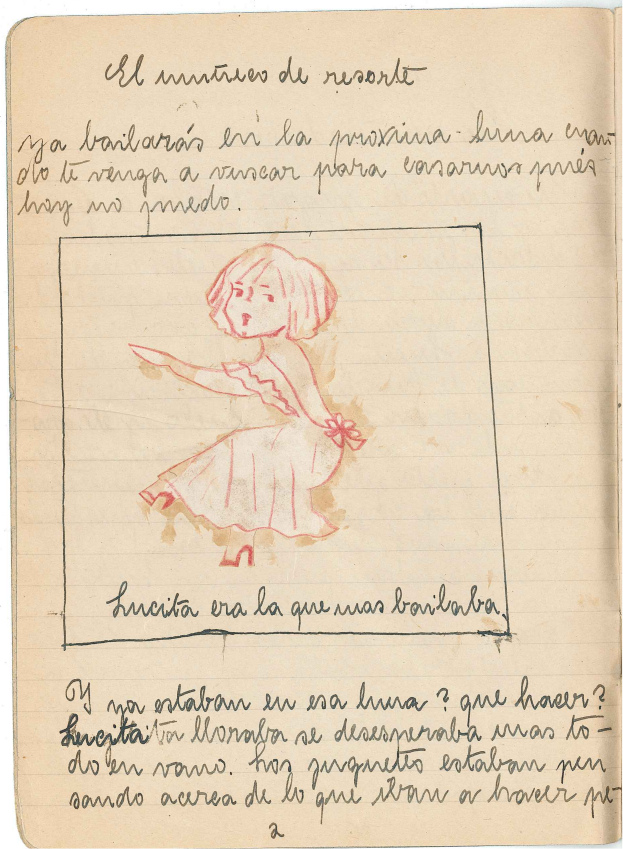 El muñeco de resorte
ya bailarás en la proxima luna cuan-
do te venga a vuscar para casarnos pués
hoy no puedo.
Lucita era la que mas bailaba.
Y ya estaban en esa luna? que hacer?
Lucita lloraba se desesperaba mas to-
do en vano. Los juguetes estaban pen
sando acerca de lo que iban a hacer pe-
2